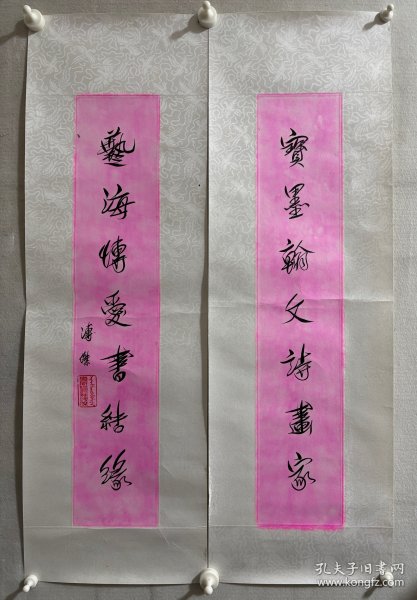 寶墨翰文詩畫家
藝海博愛書結緣
溥傑
孔夫子旧书网
www.kongfz.com